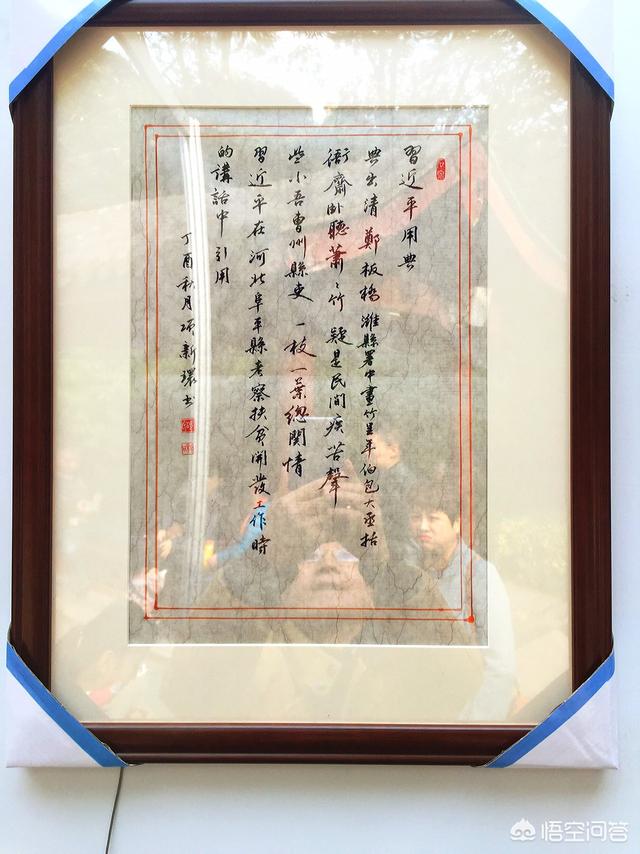 習近平用典
典出清鄭板橋濰縣署中畫竹呈年伯包大丞括
衙齋卧聽蕭〻竹 疑是民間疾苦聲
些小吾曹州縣吏 一枝一葉總関情
習近平在河北阜平縣考察扶貧開發工作時
的講話中引用
丁酉秋月項新環書
悟空问答